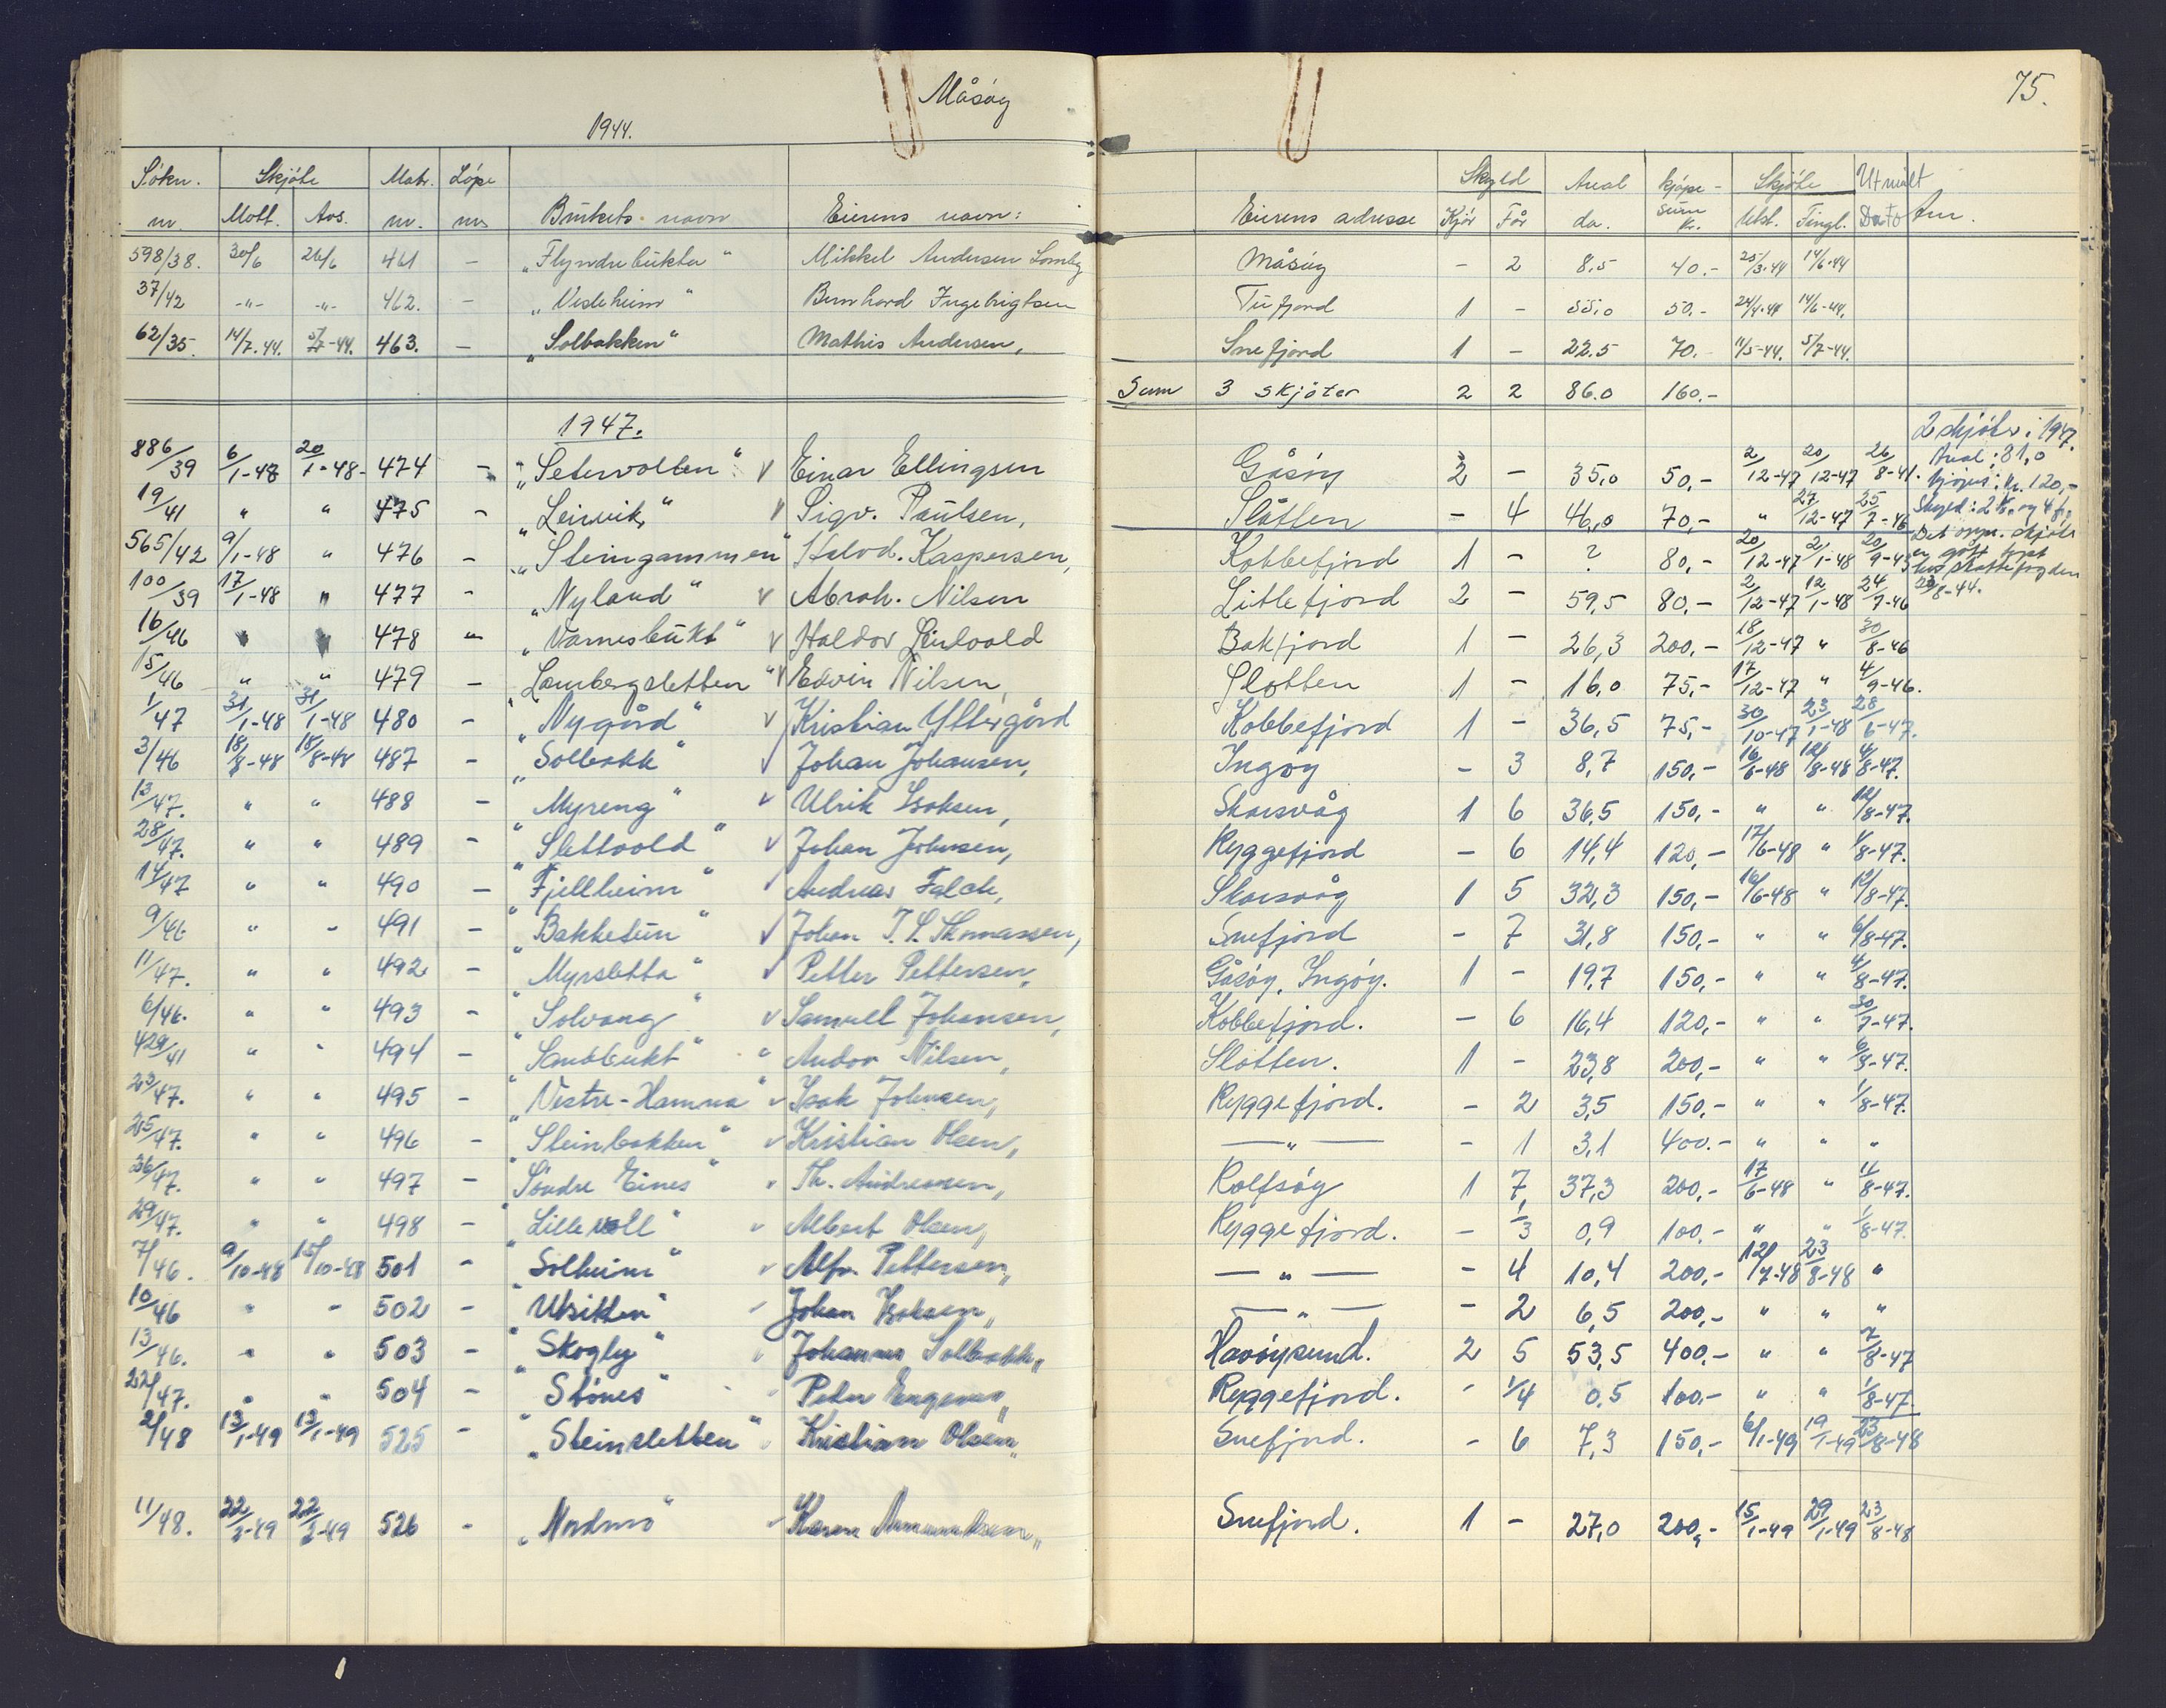 Måsøy
75.
1944.
Søkn. nr. Skjøte Mott. Avs. Matr. nr. Løpe nr. Brukets navn Eierens navn: Eierens adresse Skyld Kjør Får Areal da. Kjøpesum kr. Skjøte Utst. Tingl. Utmålt Dato Anm.
598/38. 30/6 26/6 461 – „Flyndrebukta" Mikkel Andersen Måsøy – 2 8,5 40.– 25/3-44 14/6-44
37/42 -"- -"- 462. – „Vesleheim" Bernhard Ingebrigtsen Tufjord 1 – 55,0 50.– 24/4-44 14/6-44.
62/35. 14/7.44. 463. – „Solbakken" Mathis Andersen, Snefjord 1 – 22.5 70.– 11/5-44. 5/7-44.
Sum 3 skjøter 2 2 86.0 160.–
1947.
2 skjøter i 1947.
Areal: 81,0
Kjøpes: kr. 120,–
Skyld: 2 k. og 4 f.
886/39 6/1-48 20/1-48- 474 – „Setervollen" v Einar Ellingsen Gåsøy 2 – 35,0 50,– 2/12-47 20/12-47 26/8-41.
19/41 " " 475 – „Leirvik," v Sigv. Paulsen, Slåtten – 4 46,0 70,– " 27/12-47 25/7-46
565/42 9/1-48 " 476 – „Steingammen" Halvd. Kaspersen, Kobbefjord 1 – ? 80,– 20/12-47 2/1-48 20/9-43
100/39 17/1-48 " 477 – „Nyland" v Abrah. Nilsen Litlefjord 2 – 59,5 80,– 2/12-47 12/1-48 24/7-46
8-44.
16/46 " " 478 – „Varnesbukt" v Haldor Bakfjord 1 – 26,3 200,– 18/12-47 " 30/8-46
15/46 " " 479 – „Lambergsletten" v Edvin Nilsen, Slotten 1 – 16,0 75,– 17/12-47 " 4/9-46.
1/47 31/1-48 31/1-48 480 – „Nygård" v Kristian Yttergård Kobbefjord 1 – 36,5 75,– 30/10-47 23/1-48 28/6-47.
3/46 18/8-48 18/8-48 487 – „Solbakk" v Johan Johansen, Ingøy – 3 8,7 150,– 16/6-48 12/8-48 4/8-47.
13/47. " " 488 – „Myreng" v Ulrik Isaksen, Skarsvåg 1 6 36,5 150,– " " 12/8-47.
28/47. " " 489 – „Slettvold" v Johan Johnsen, Ryggefjord – 6 14,4 120,– 17/6-48 " 1/8-47.
14/47 " " 490 – „Fjellheim" v Andreas Falch, Skarsvåg 1 5 32,3 150,– 16/6-48 " 12/8-47.
9/46 " – 491 – „Bakketun" v Johan Thomassen, Snefjord – 7 31,8 150,– " " 6/8-47.
11/47. " " 492 – „Myrsletta" v Petter Pettersen, Gåsøy, Ingøy. 1 – 19,7 150,– " " 4/8-47.
6/46. " " 493 – „Solvang" v Samuel Johansen, Kobbefjord. – 6 16,4 120,– " " 30/7-47.
429/41 " " 494 – „Sandbukt" " Andor Nilsen, Slotten. 1 – 23,8 200,– " " 6/8-47.
23/47. " " 495 – „Vestre-Hamna" v Isak Johnsen, Ryggefjord. – 2 3,5 150,– " " 1/8-47.
25/47. " " 496 – „Steinbakken" v Kristian Olsen, — " — – 1 3,1 400.– " " "
36/47. " " 497 – „Søndre Eines" v Th. Andreassen, Rolfsøy 1 7 37,3 200,– 17/6-48 " 11/8-47.
29/47. " " 498 – „Lillevoll" v Albert Olsen, Ryggefjord. – 1/3 0,9 100.– " " 1/8-47.
7/46. 9/10-48 15/10-48 501 – „Solheim" v Alfr. Pettersen, — " — – 4 10,4 200,– 12/7-48 23/8-48 "
10/46 " – 502 – „Utsikten" Johan Isaksen, — " — – 2 6,5 200,– " " "
13/46. " " 503 – „Skogly" Johannes Solbakk, Havøysund. 2 5 53,5 400,– " " 7/8-47
22/47. " " 504 – „Stønes" Peder Ryggefjord. – 1/4 0,5 100.– " " 1/8-47.
2/48 13/1-49 13/1-49 525 – „Steinsletten" Kristian Olsen, Snefjord. – 6 7,3 150,– 6/1-49 19/1-49 23/8-48
11/48. 22/2-49 22/2-49 526 – „Nordmo" Karen Amundsen, Snefjord. 1 – 27,0 200,– 15/1-49 29/1-49 23/8-48